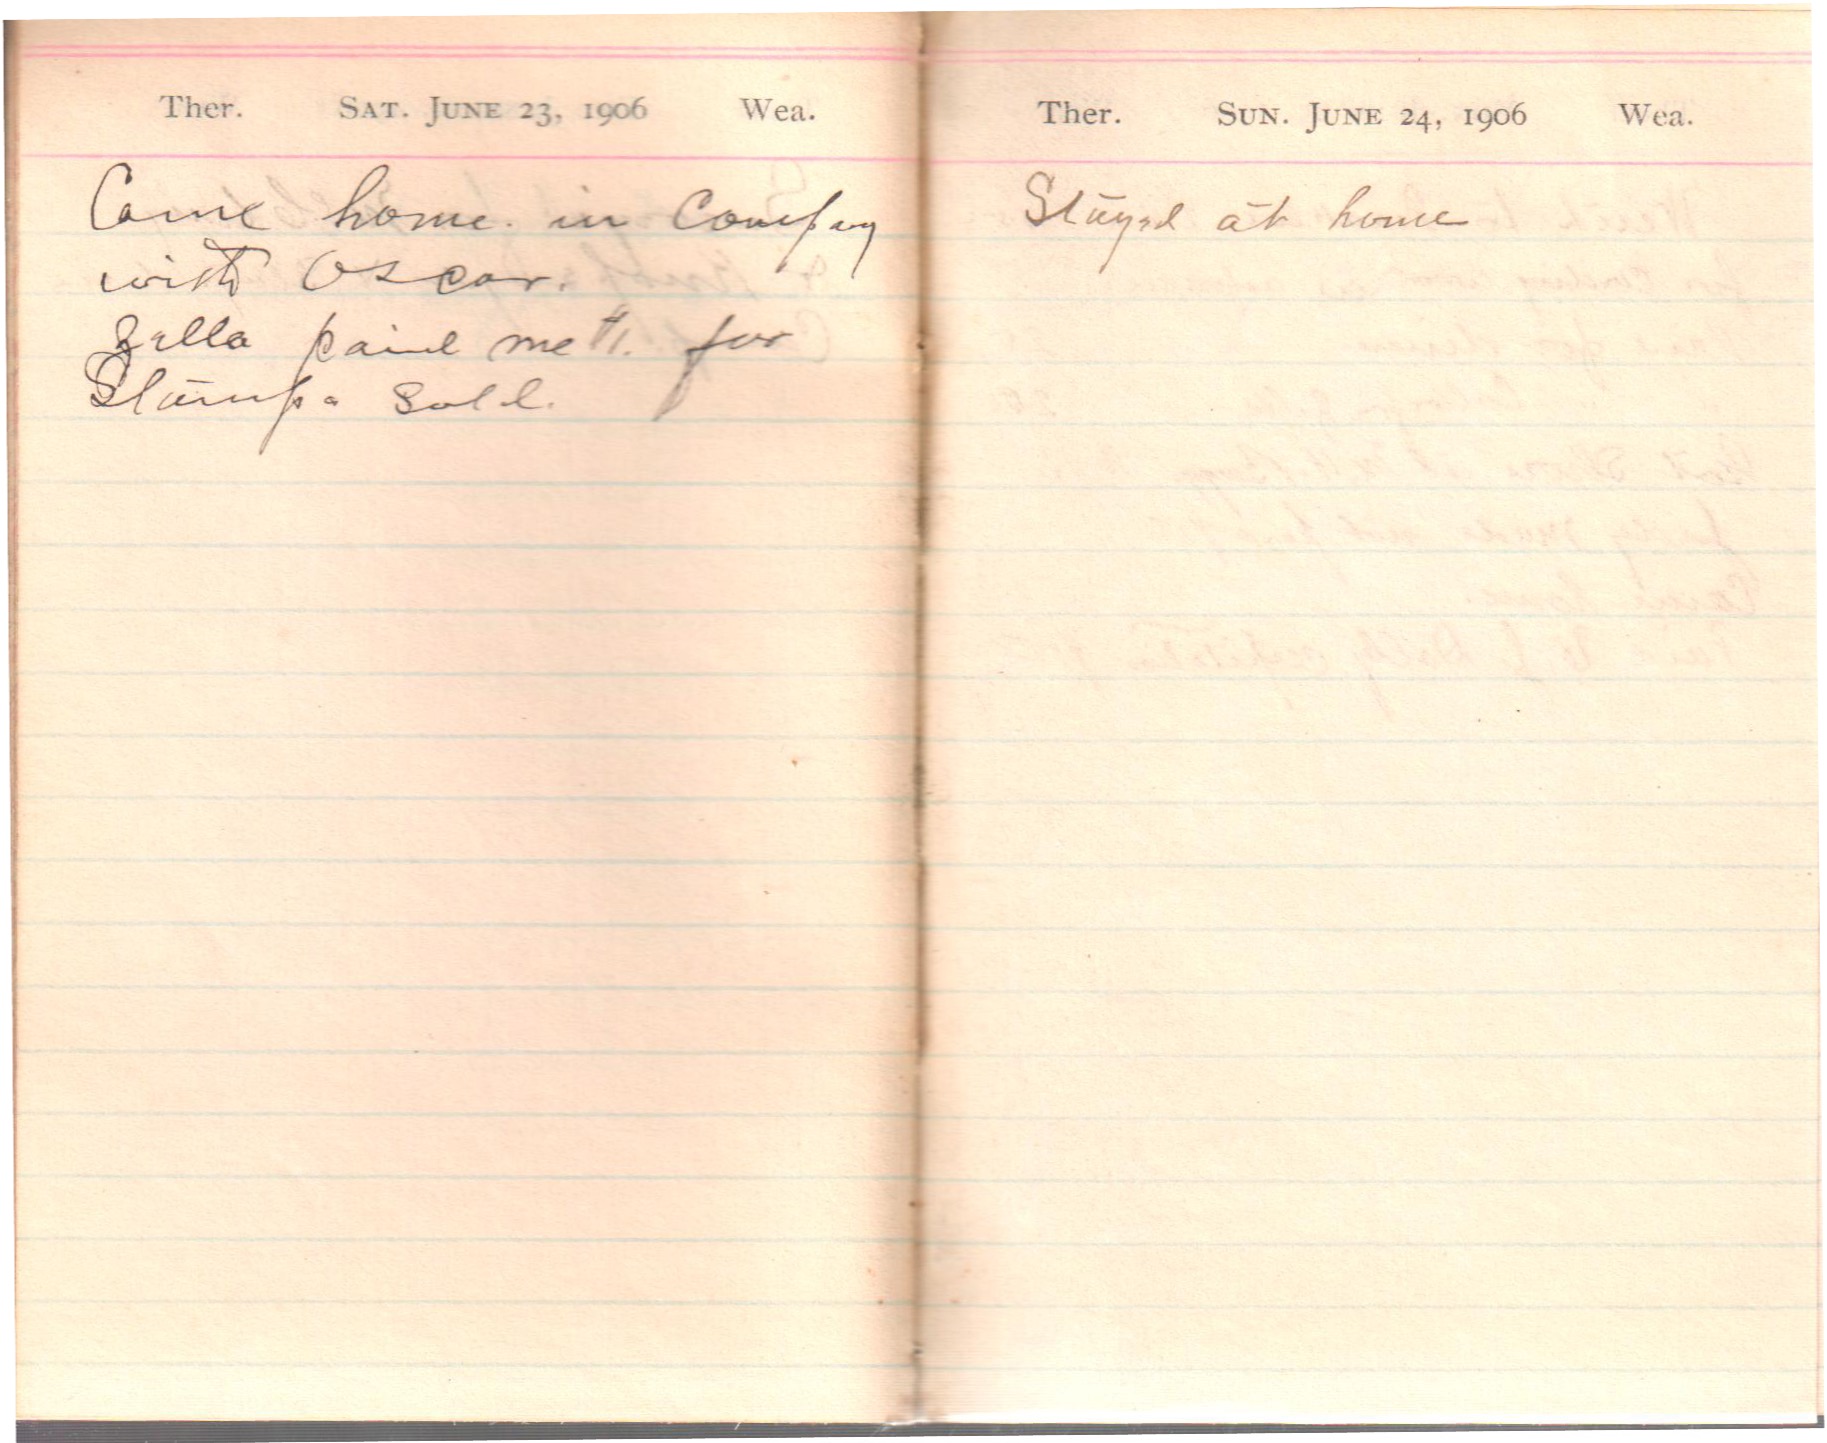 Ther. SAT. JUNE 23, 1906 Wea.
Came home. in Company
with Oscar.
Zella paid me $1. for
Stamps sold.
Ther. SUN. JUNE 24, 1906 Wea.
Stayed at home